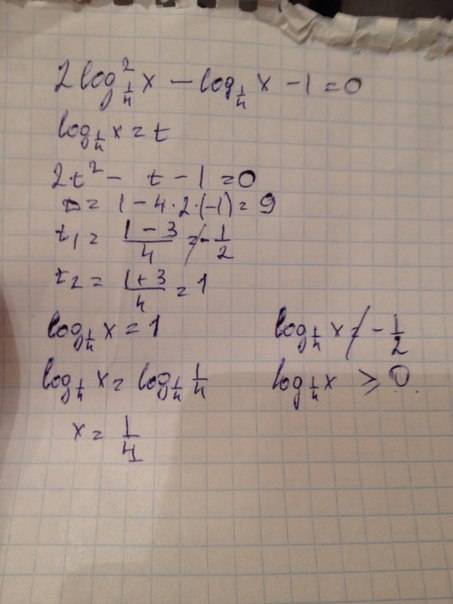 2log²_{1/4} x − log_{1/4} x − 1 = 0
log_{1/4} x = t
2t² − t − 1 = 0
D = 1 − 4·2·(−1) = 9
t₁ = (1 − 3)/4 ≠ −1/2
t₂ = (1 + 3)/4 = 1
log_{1/4} x = 1    log_{1/4} x ≠ −1/2
log_{1/4} x = log_{1/4} 1/4    log_{1/4} x ≥ 0
x = 1/4